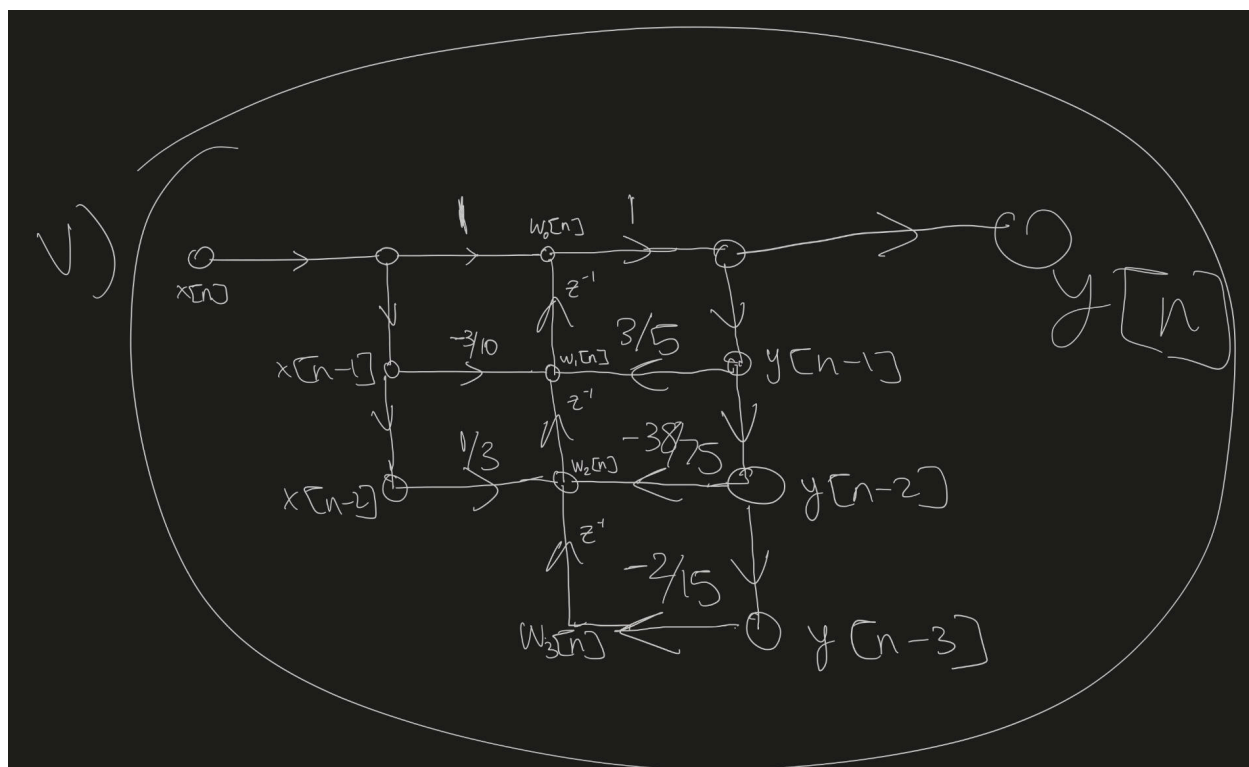 V)
1
1
W₀[n]
x[n]
y[n]
z⁻¹
x[n-1]
-3/10
W₁[n]
3/5
y[n-1]
z⁻¹
x[n-2]
1/3
W₂[n]
-38/75
y[n-2]
z⁻¹
-2/15
W₃[n]
y[n-3]